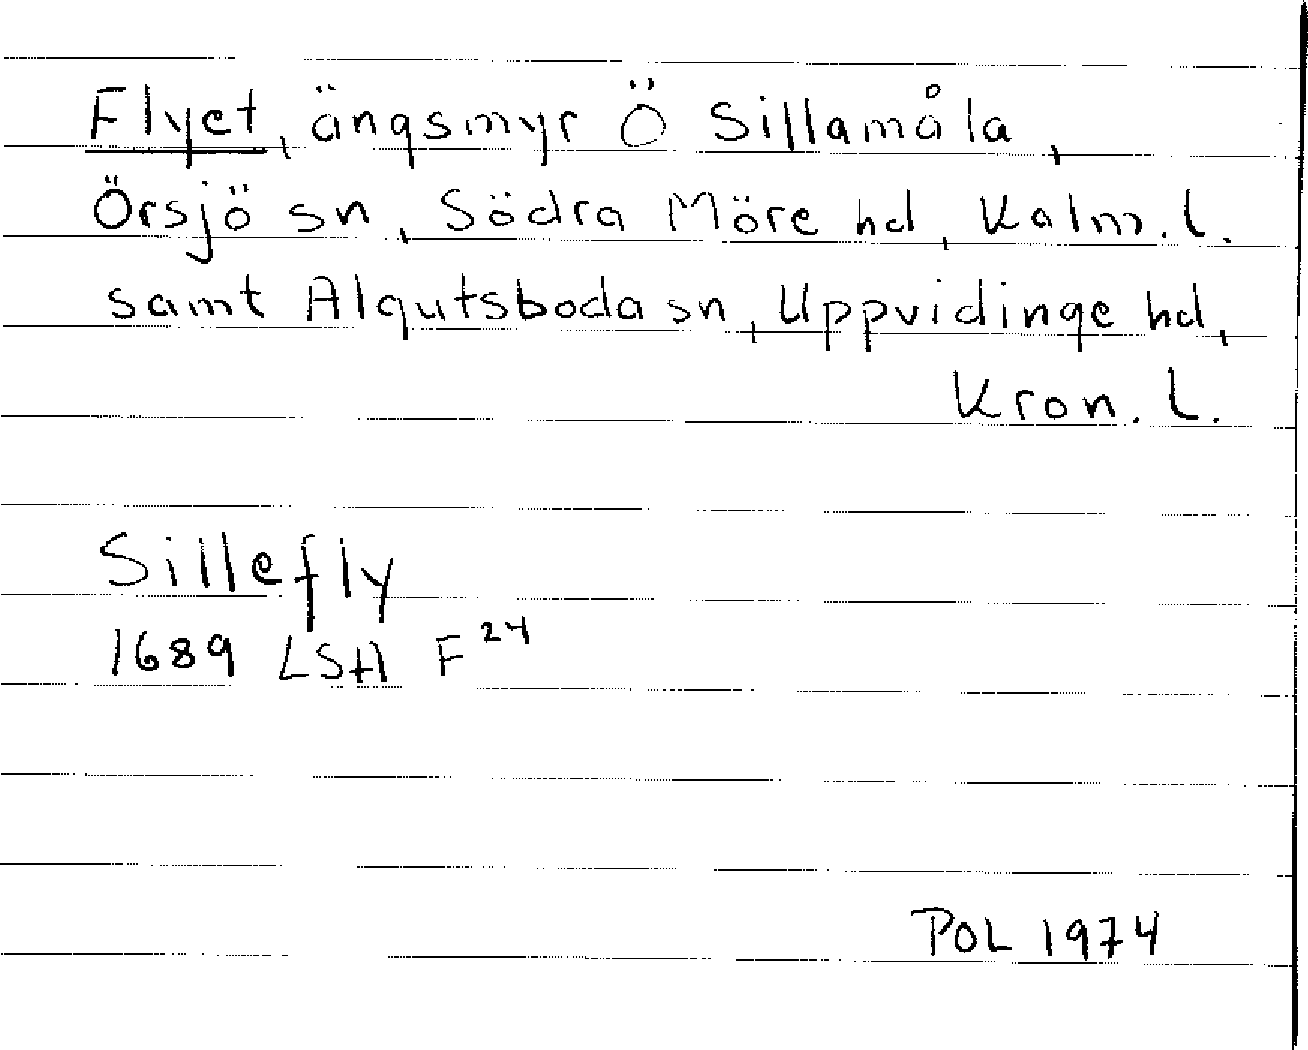 Flyet, ängsmyr Ö Sillamåla,
Örsjö sn, Södra Möre hd, Kalm. l.
samt Algutsboda sn, Uppvidinge hd,
Kron. l.
Sillefly
1689 LSHA F 24
POL 1974